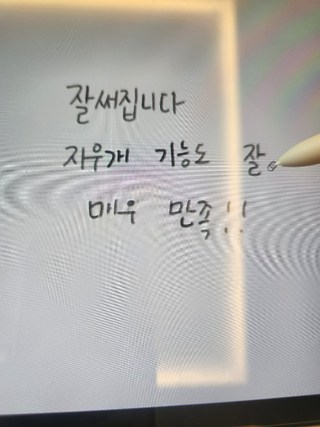 잘써집니다
지우개 기능도 잘
매우 만족!!